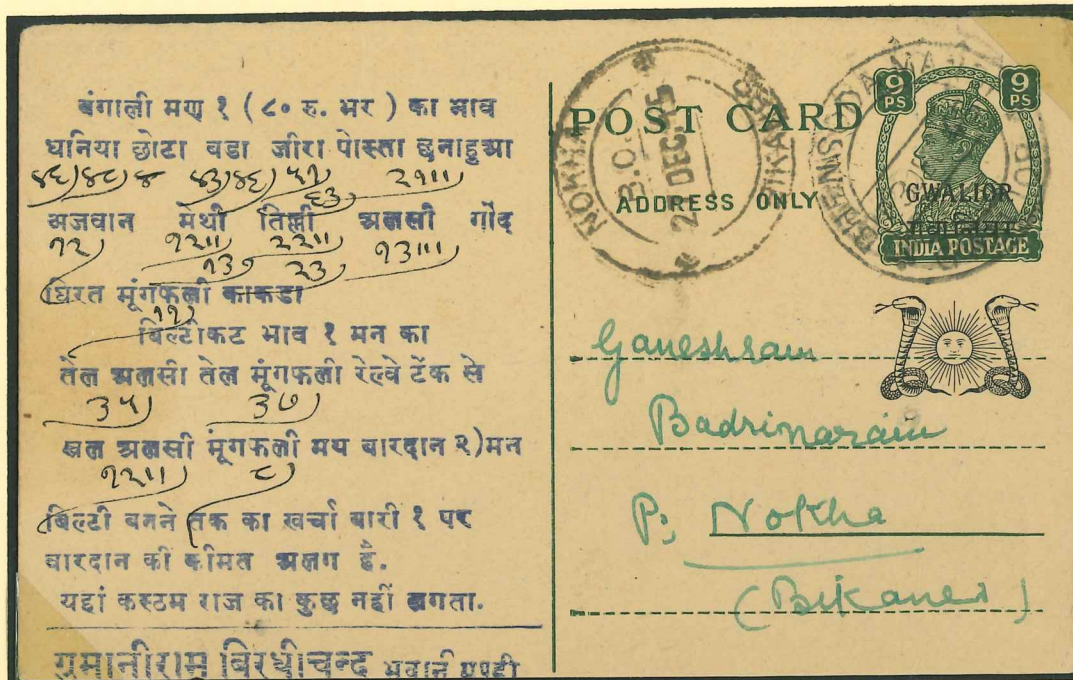 बंगाली मण १ (८० रु. भर) का भाव
धनिया छोटा वडा जीरा पोस्ता छनाहुआ
४६) ४८)
२१॥)
अजवान मेथी तिल्ली अलसी गोंद
१२) १२॥) २२॥) १३॥।)
१३) २३)
घिरत मूंगफली काकडा
१९)
बिल्टीकट भाव १ मन का
तेल अलसी तेल मूंगफली रेल्वे टेंक से
३५) ३७)
खल अलसी मूंगफली मय बारदान २)मन
१२॥) ८)
बिल्टी बनने तक का खर्चा बारी १ पर
बारदान की कीमत अलग है.
यहां कस्टम राज का कुछ नहीं लगता.
गुमानीराम बिरधीचन्द भवानी मण्डी
POST CARD
ADDRESS ONLY
NOKHA
B.O.
DEC. 45
BIKANER
9 PS
9 PS
GWALIOR
INDIA POSTAGE
Ganeshram
Badrinarain
P; Nokha
(Bikaner)